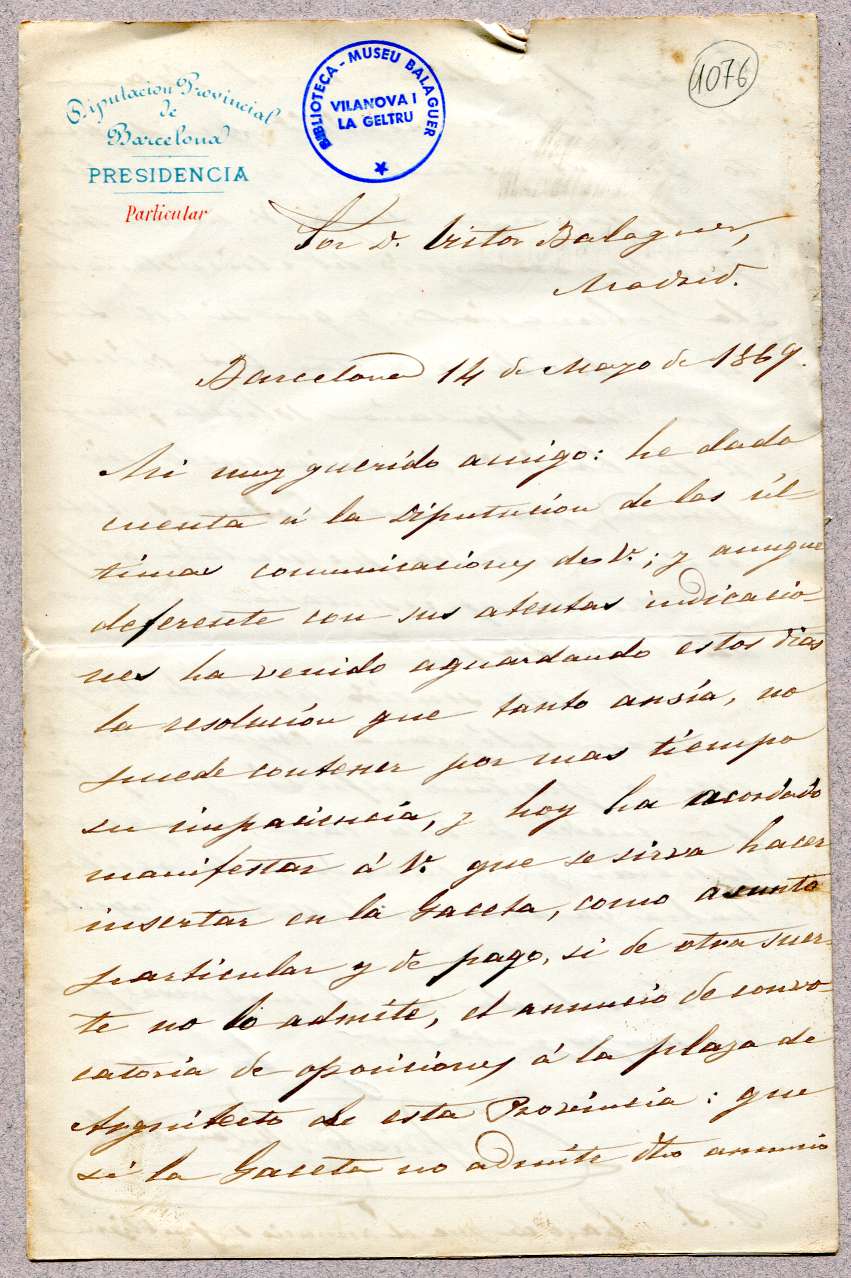 Diputacion Provincial
de
Barcelona
PRESIDENCIA
Particular
BIBLIOTECA - MUSEU BALAGUER
VILANOVA I
LA GELTRU
1076
Sor D. Victor Balaguer,
Madrid.
Barcelona 14 de Mayo de 1869.
Mi muy querido amigo: he dado
cuenta á la Diputacion de las úl-
timas comunicaciones de V.; y aunque
deferente con sus atentas indicacio-
nes ha venido aguardando estos dias
la resolucion que tanto ansía, no
puede contener por mas tiempo
su impaciencia, y hoy ha acordado
manifestar á V. que se sirva hacer
insertar en la Gaceta, como asunto
particular y de pago, si de otra suer-
te no lo admite, el anuncio de convo-
catoria de oposiciones á la plaza de
Arquitecto de esta Provincia: que
si la Gaceta no admite dho anuncio